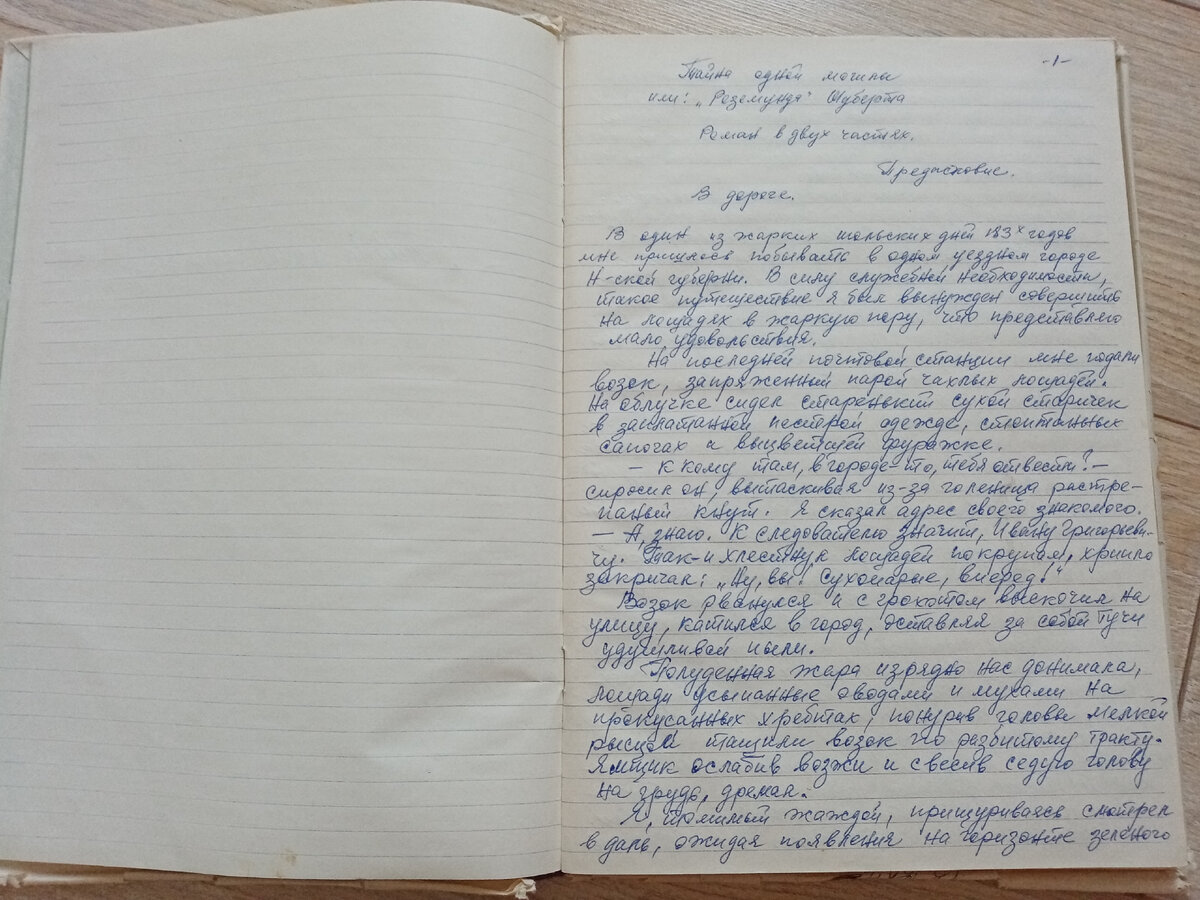 -1-
Тайна одной могилы
или: „Роземунда" Шуберта
Роман в двух частях.
Предисловие.
В дороге.
В один из жарких июльских дней 183х годов
мне пришлось побывать в одном уездном городе
Н-ской губерни. В силу служебной необходимости,
такое путешествие я был вынужден совершить
на лошадях в жаркую пору, что представляло
мало удовольствия.
На последней почтовой станции мне подали
возок, запряженный парой чахлых лошадей.
На облучке сидел старенький сухой старичек
в заплатанной пестрой одежде, стоптанных
сапогах и выцветшей фуражке.
— К кому там, в городе-то, тебя отвести? —
спросил он, вытаскивая из-за голенища растре-
паный кнут. Я сказал адрес своего знакомого.
— А, знаю. К следователю значит, Ивану Григорьеви-
чу. Так - и хлестнул лошадей по крупам, хрипло
закричал: „Ну, вы! Сухопарые, вперед!"
Возок рванулся и с грохотом выскочил на
улицу, катился в город, оставляя за собой тучи
удушливой пыли.
Полуденная жара изрядно нас донимала,
лошади усыпанные оводами и мухами на
прокусанных хребтах, понурив головы мелкой
рысцой тащили возок по разбитому тракту.
Ямщик ослабив возжи и свесив седую голову
на грудь, дремал.
Я, томимый жаждой, прищуриваясь смотрел
в даль, ожидая появления на горизонте зеленого